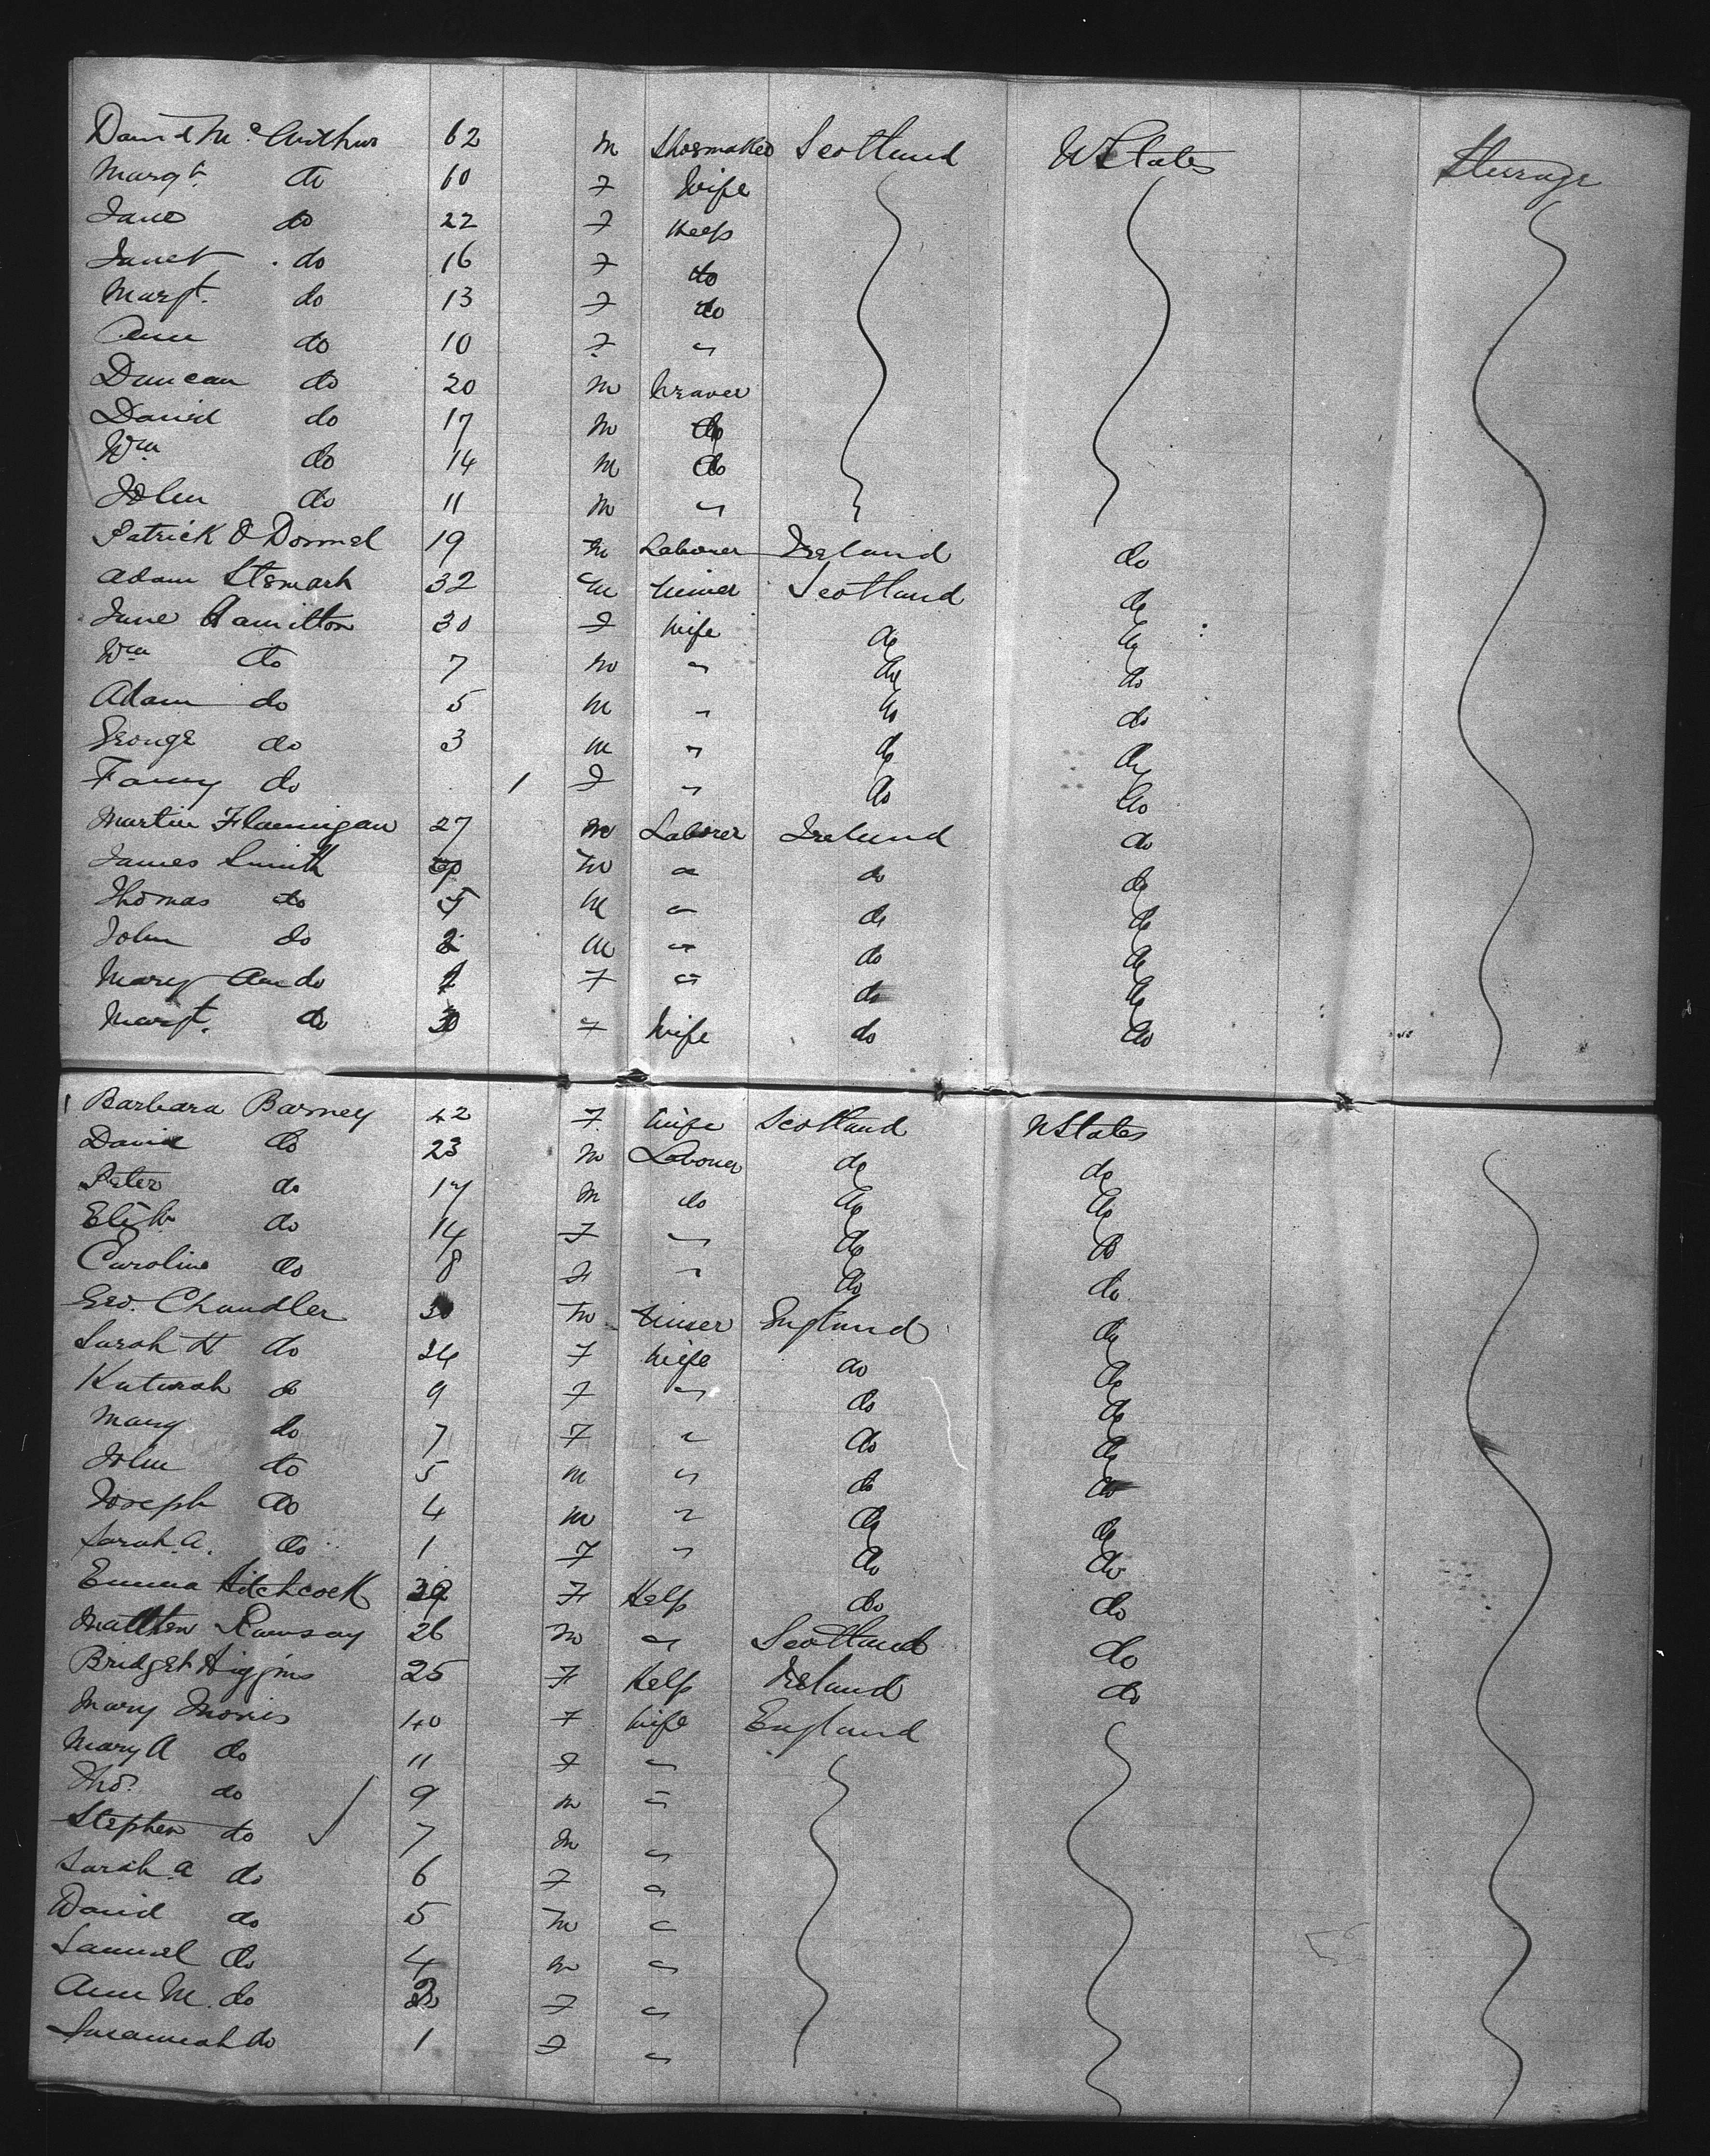 David McArthur 62 m Shoemaker Scotland UStates Steerage
Margt. do 60 F Wife
Jane do 22 F Help
Janet do 16 F do
Margt. do 13 F do
Ann do 10 F "
Duncan do 20 m Weaver
David do 17 m do
Wm do 14 m do
John do 11 m "
Patrick O Donnel 19 m Laborer Ireland do
Adam 32 m Miner Scotland do
Jane Hamilton 30 F Wife do do
Wm do 7 m " do do
Adam do 5 m " do do
George do 3 m " do do
Fanny do 1 F " do do
Martin Flannigan 27 m Laborer Ireland do
James Smith m " do do
Thomas do m " do do
John do 2 m " do do
Mary Ann do F " do do
Margt. do 30 F Wife do do
Barbara Barney 42 F. Wife Scotland UStates
David do 23 m Laborer do do
Peter do 17 m do do do
Elizth do 14 F " do do
Caroline do 8 F " do do
Geo. Chandler 30 m Miner England do
Sarah H do 24 F Wife do do
Katurah do 9 F " do do
Mary do 7 F " do do
John do 5 m " do do
Joseph do 4 m " do do
Sarah A. do 1 F " do do
Emma Hitchcock F Help do do
Matthew Ramsay 26 m " Scotland do
Bridget Higgins 25 F Help Ireland do
Mary Morris 40 F Wife England
Mary A do 11 F "
Thos. do 9 m "
Stephen do 7 m "
Sarah A do 6 F "
David do 5 m "
Samuel do 4 m "
Ann M. do 2 F "
Susannah do 1 F "